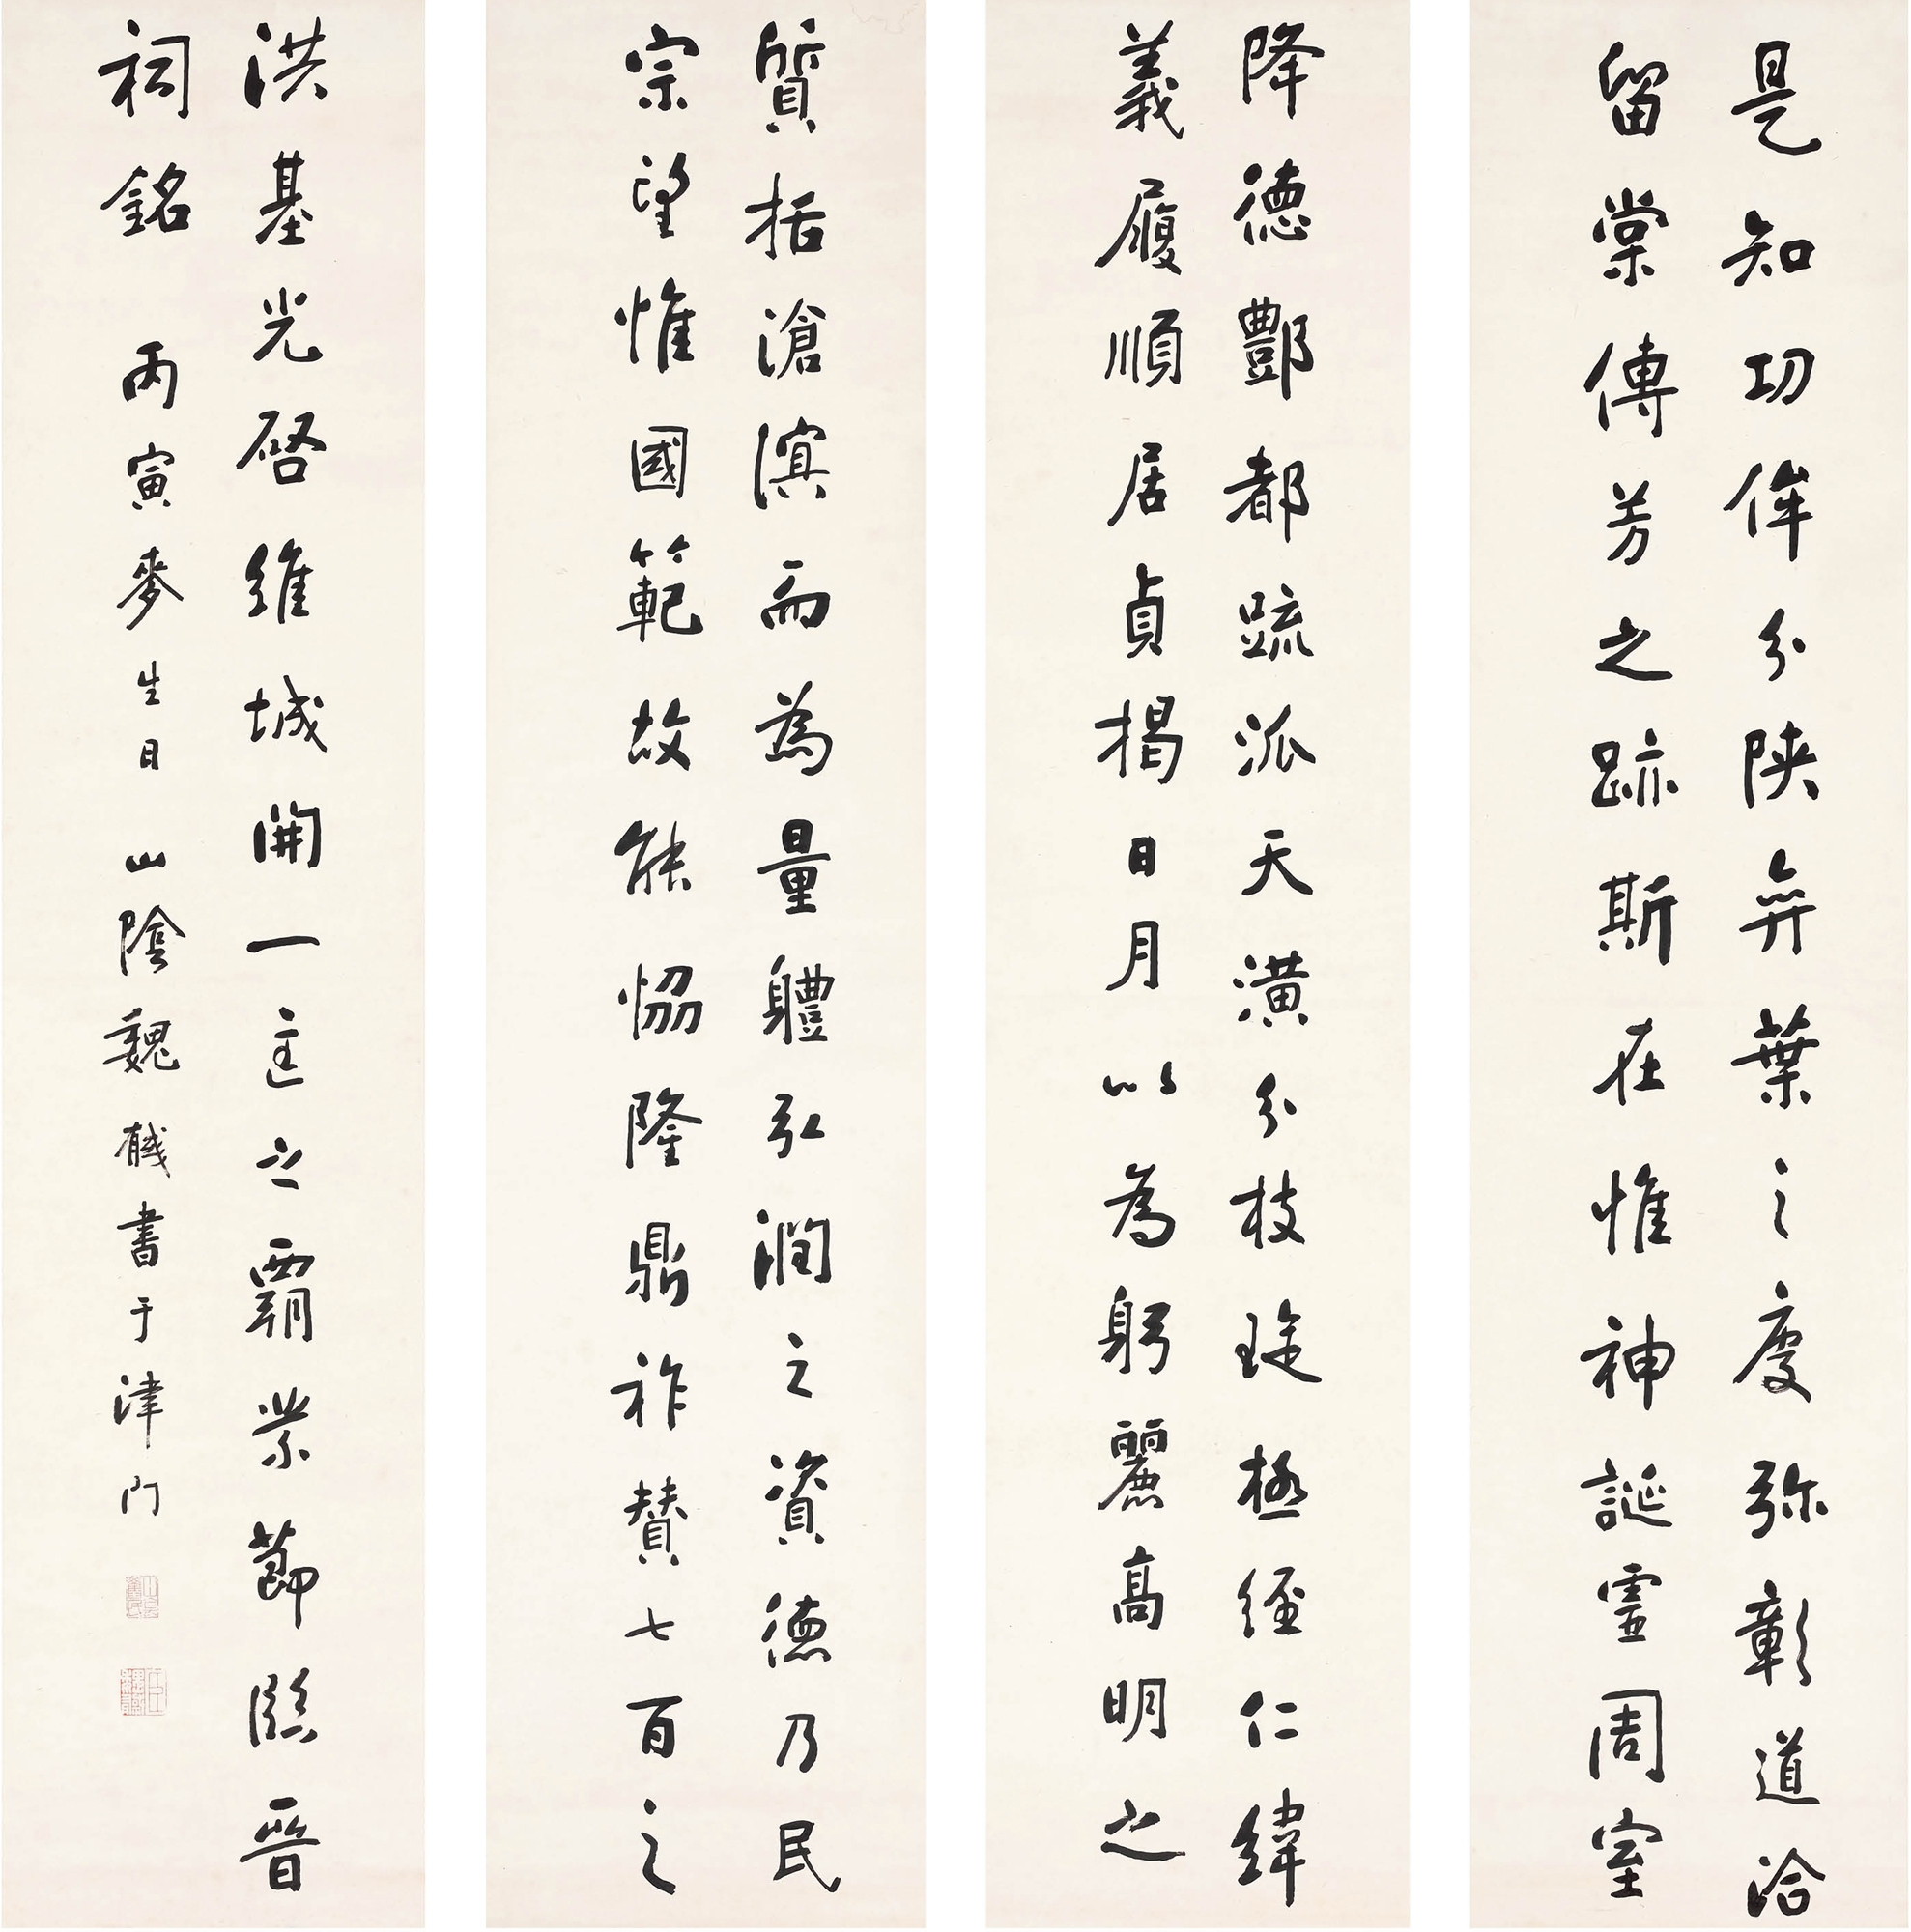 是知功侔分陝弈葉之慶弥彰道洽
留棠傳芳之跡斯在惟神誕靈周室
降德酆都疏派天潢分枝琁極經仁緯
義履順居貞揭日月以為躬麗高明之
質括滄溟而為量體弘潤之資德乃民
宗望惟國範故能協隆鼎祚贊七百之
洪基光啓維城開一匡之霸業節臨晉
祠銘
丙寅麥生日 山陰魏戫書于津門